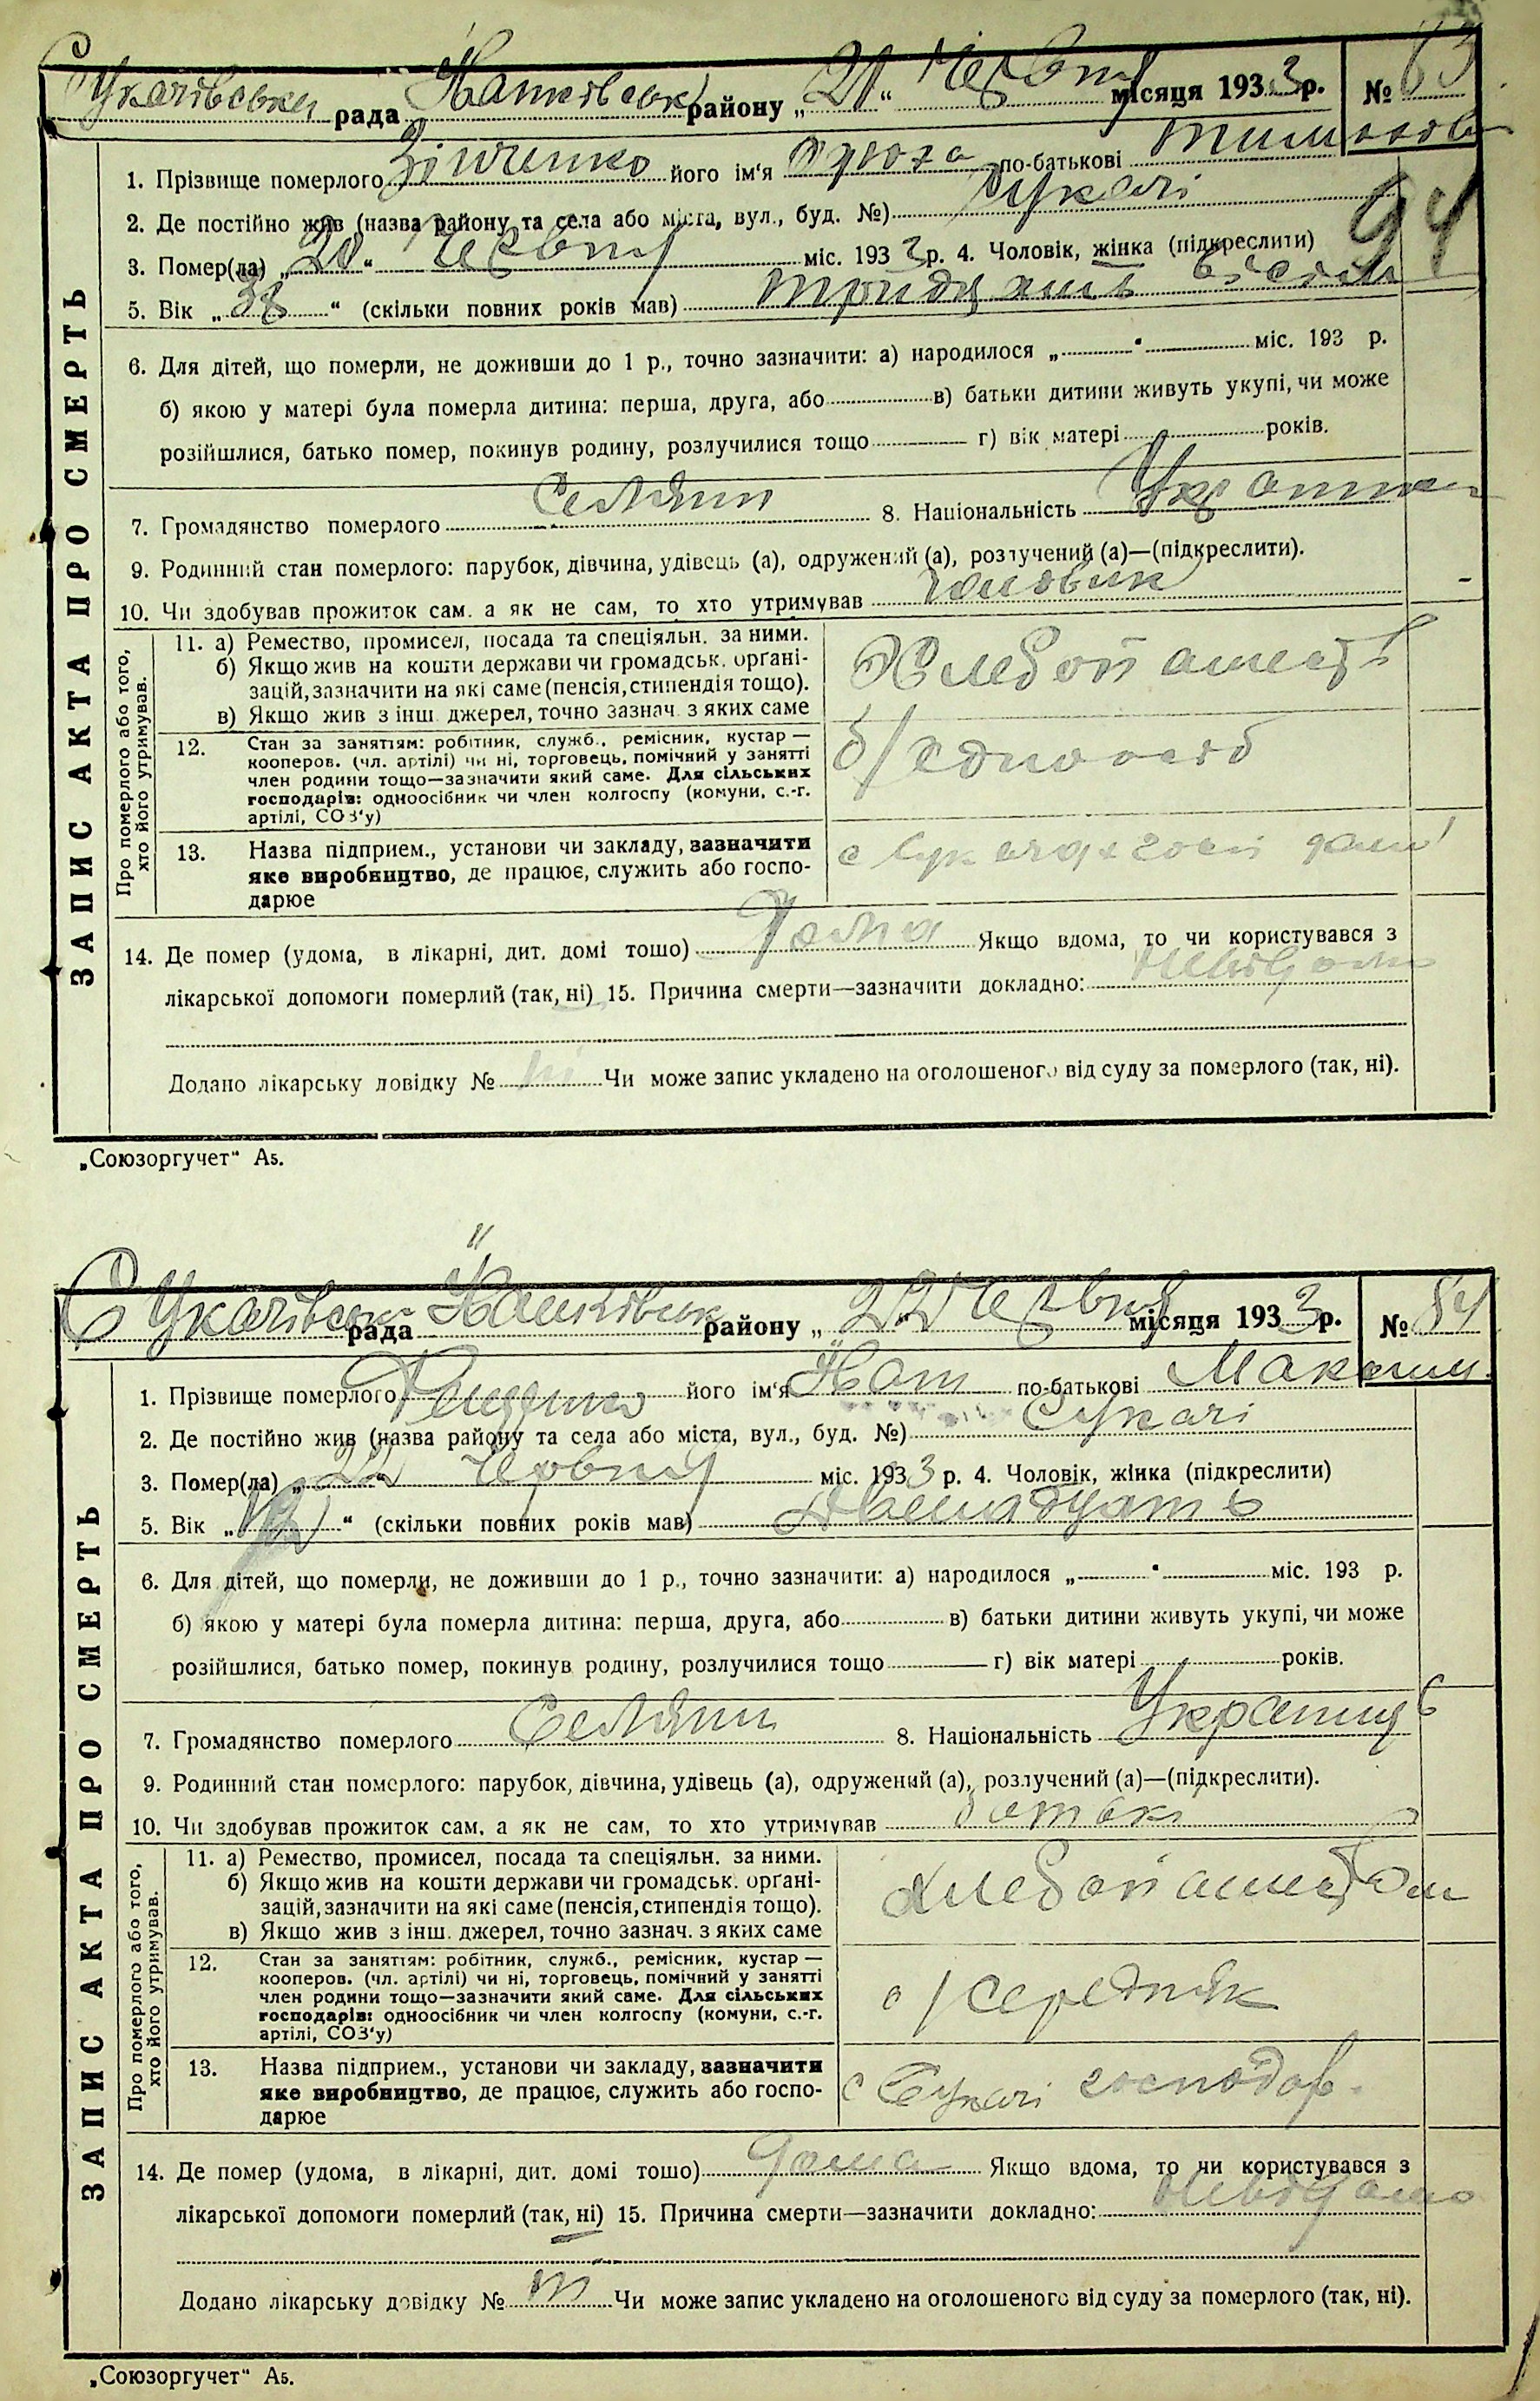 Сукачівська рада Кашківськ району „21“ Червня місяця 1933 р. № 83
1. Прізвище померлого Зінченко його ім'я по-батькові
2. Де постійно жив (назва району та села або міста, вул., буд. №) Сукачі
94
3. Помер(ла) „20“ Червня міс. 1933 р. 4. Чоловік, жінка (підкреслити)
5. Вік „38“ (скільки повних років мав) тридцять вісім
6. Для дітей, що померли, не доживши до 1 р., точно зазначити: а) народилося „ “ міс. 193 р.
б) якою у матері була померла дитина: перша, друга, або в) батьки дитини живуть укупі, чи може
розійшлися, батько помер, покинув родину, розлучилися тощо г) вік матері років.
7. Громадянство померлого Селяни 8. Національність
9. Родинний стан померлого: парубок, дівчина, удівець (а), одружений (а), розлучений (а)—(підкреслити).
10. Чи здобував прожиток сам, а як не сам, то хто утримував чоловік
ЗАПИС АКТА ПРО СМЕРТЬ
Про померлого або того, хто його утримував.
11. а) Ремество, промисел, посада та спеціяльн. за ними.
б) Якщо жив на кошти держави чи громадськ. орґані-
зацій, зазначити на які саме (пенсія, стипендія тощо).
в) Якщо жив з інш. джерел, точно зазнач. з яких саме
12. Стан за заняттям: робітник, служб., ремісник, кустар —
кооперов. (чл. артілі) чи ні, торговець, помічний у занятті
член родини тощо—зазначити який саме. Для сільських
господарів: одноосібник чи член колгоспу (комуни, с.-г.
артілі, СОЗ'у)
б/едноосіб
13. Назва підприєм., установи чи закладу, зазначити
яке виробництво, де працює, служить або госпо-
дарюе
14. Де помер (удома, в лікарні, дит. домі тошо) Дома Якщо вдома, то чи користувався з
лікарської допомоги померлий (так, ні) 15. Причина смерти—зазначити докладно: невідомо
Додано лікарську довідку № ні Чи може запис укладено на оголошеного від суду за померлого (так, ні).
„Союзоргучет“ А5.
Сукачівськ рада Кашківськ району „22“ Червня місяця 1933 р. № 84
1. Прізвище померлого його ім'я по-батькові Максим
2. Де постійно жив (назва району та села або міста, вул., буд. №) Сукачі
3. Помер(ла) „22“ Червня міс. 1933 р. 4. Чоловік, жінка (підкреслити)
5. Вік „12“ (скільки повних років мав) Дванадцять
6. Для дітей, що померли, не доживши до 1 р., точно зазначити: а) народилося „ “ міс. 193 р.
б) якою у матері була померла дитина: перша, друга, або в) батьки дитини живуть укупі, чи може
розійшлися, батько помер, покинув родину, розлучилися тощо г) вік матері років.
7. Громадянство померлого Селяни 8. Національність Українць
9. Родинний стан померлого: парубок, дівчина, удівець (а), одружений (а), розлучений (а)—(підкреслити).
10. Чи здобував прожиток сам, а як не сам, то хто утримував батькі
ЗАПИС АКТА ПРО СМЕРТЬ
Про померлого або того, хто його утримував.
11. а) Ремество, промисел, посада та спеціяльн. за ними.
б) Якщо жив на кошти держави чи громадськ. орґані-
зацій, зазначити на які саме (пенсія, стипендія тощо).
в) Якщо жив з інш. джерел, точно зазнач. з яких саме
12. Стан за заняттям: робітник, служб., ремісник, кустар —
кооперов. (чл. артілі) чи ні, торговець, помічний у занятті
член родини тощо—зазначити який саме. Для сільських
господарів: одноосібник чи член колгоспу (комуни, с.-г.
артілі, СОЗ'у)
с/середняк
13. Назва підприєм., установи чи закладу, зазначити
яке виробництво, де працює, служить або госпо-
дарюе
с Сукачі господар.
14. Де помер (удома, в лікарні, дит. домі тошо) дома Якщо вдома, то чи користувався з
лікарської допомоги померлий (так, ні) 15. Причина смерти—зазначити докладно: невідомо
Додано лікарську довідку № ні Чи може запис укладено на оголошеного від суду за померлого (так, ні).
„Союзоргучет“ А5.